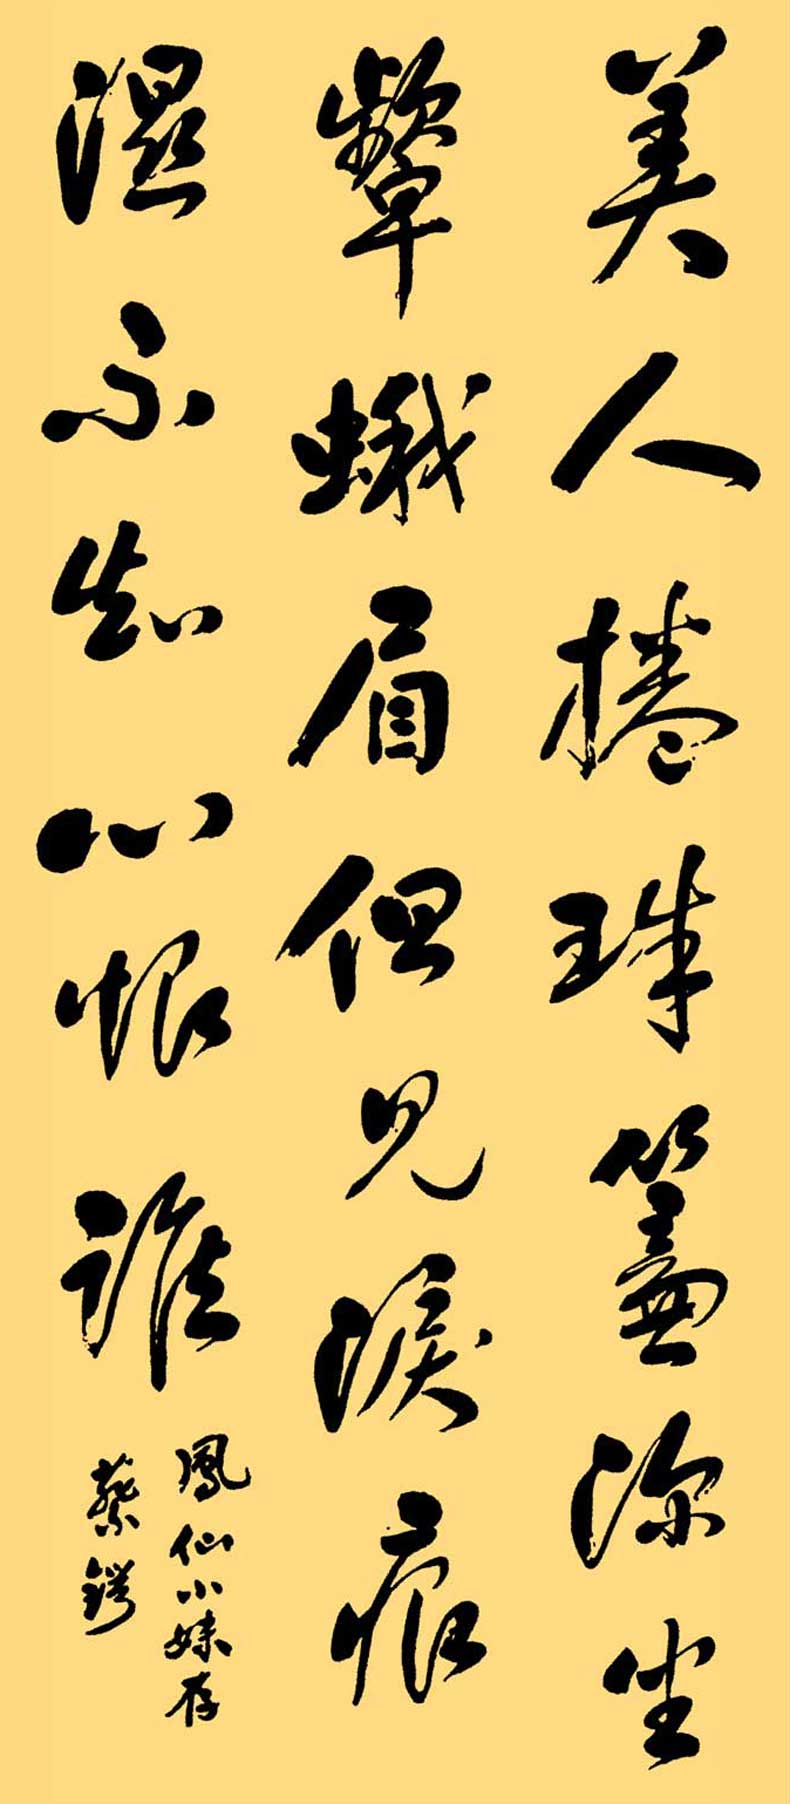 美人捲珠簾深坐
顰蛾眉但見淚痕
濕不知心恨誰
鳳仙小妹存
蔡鍔